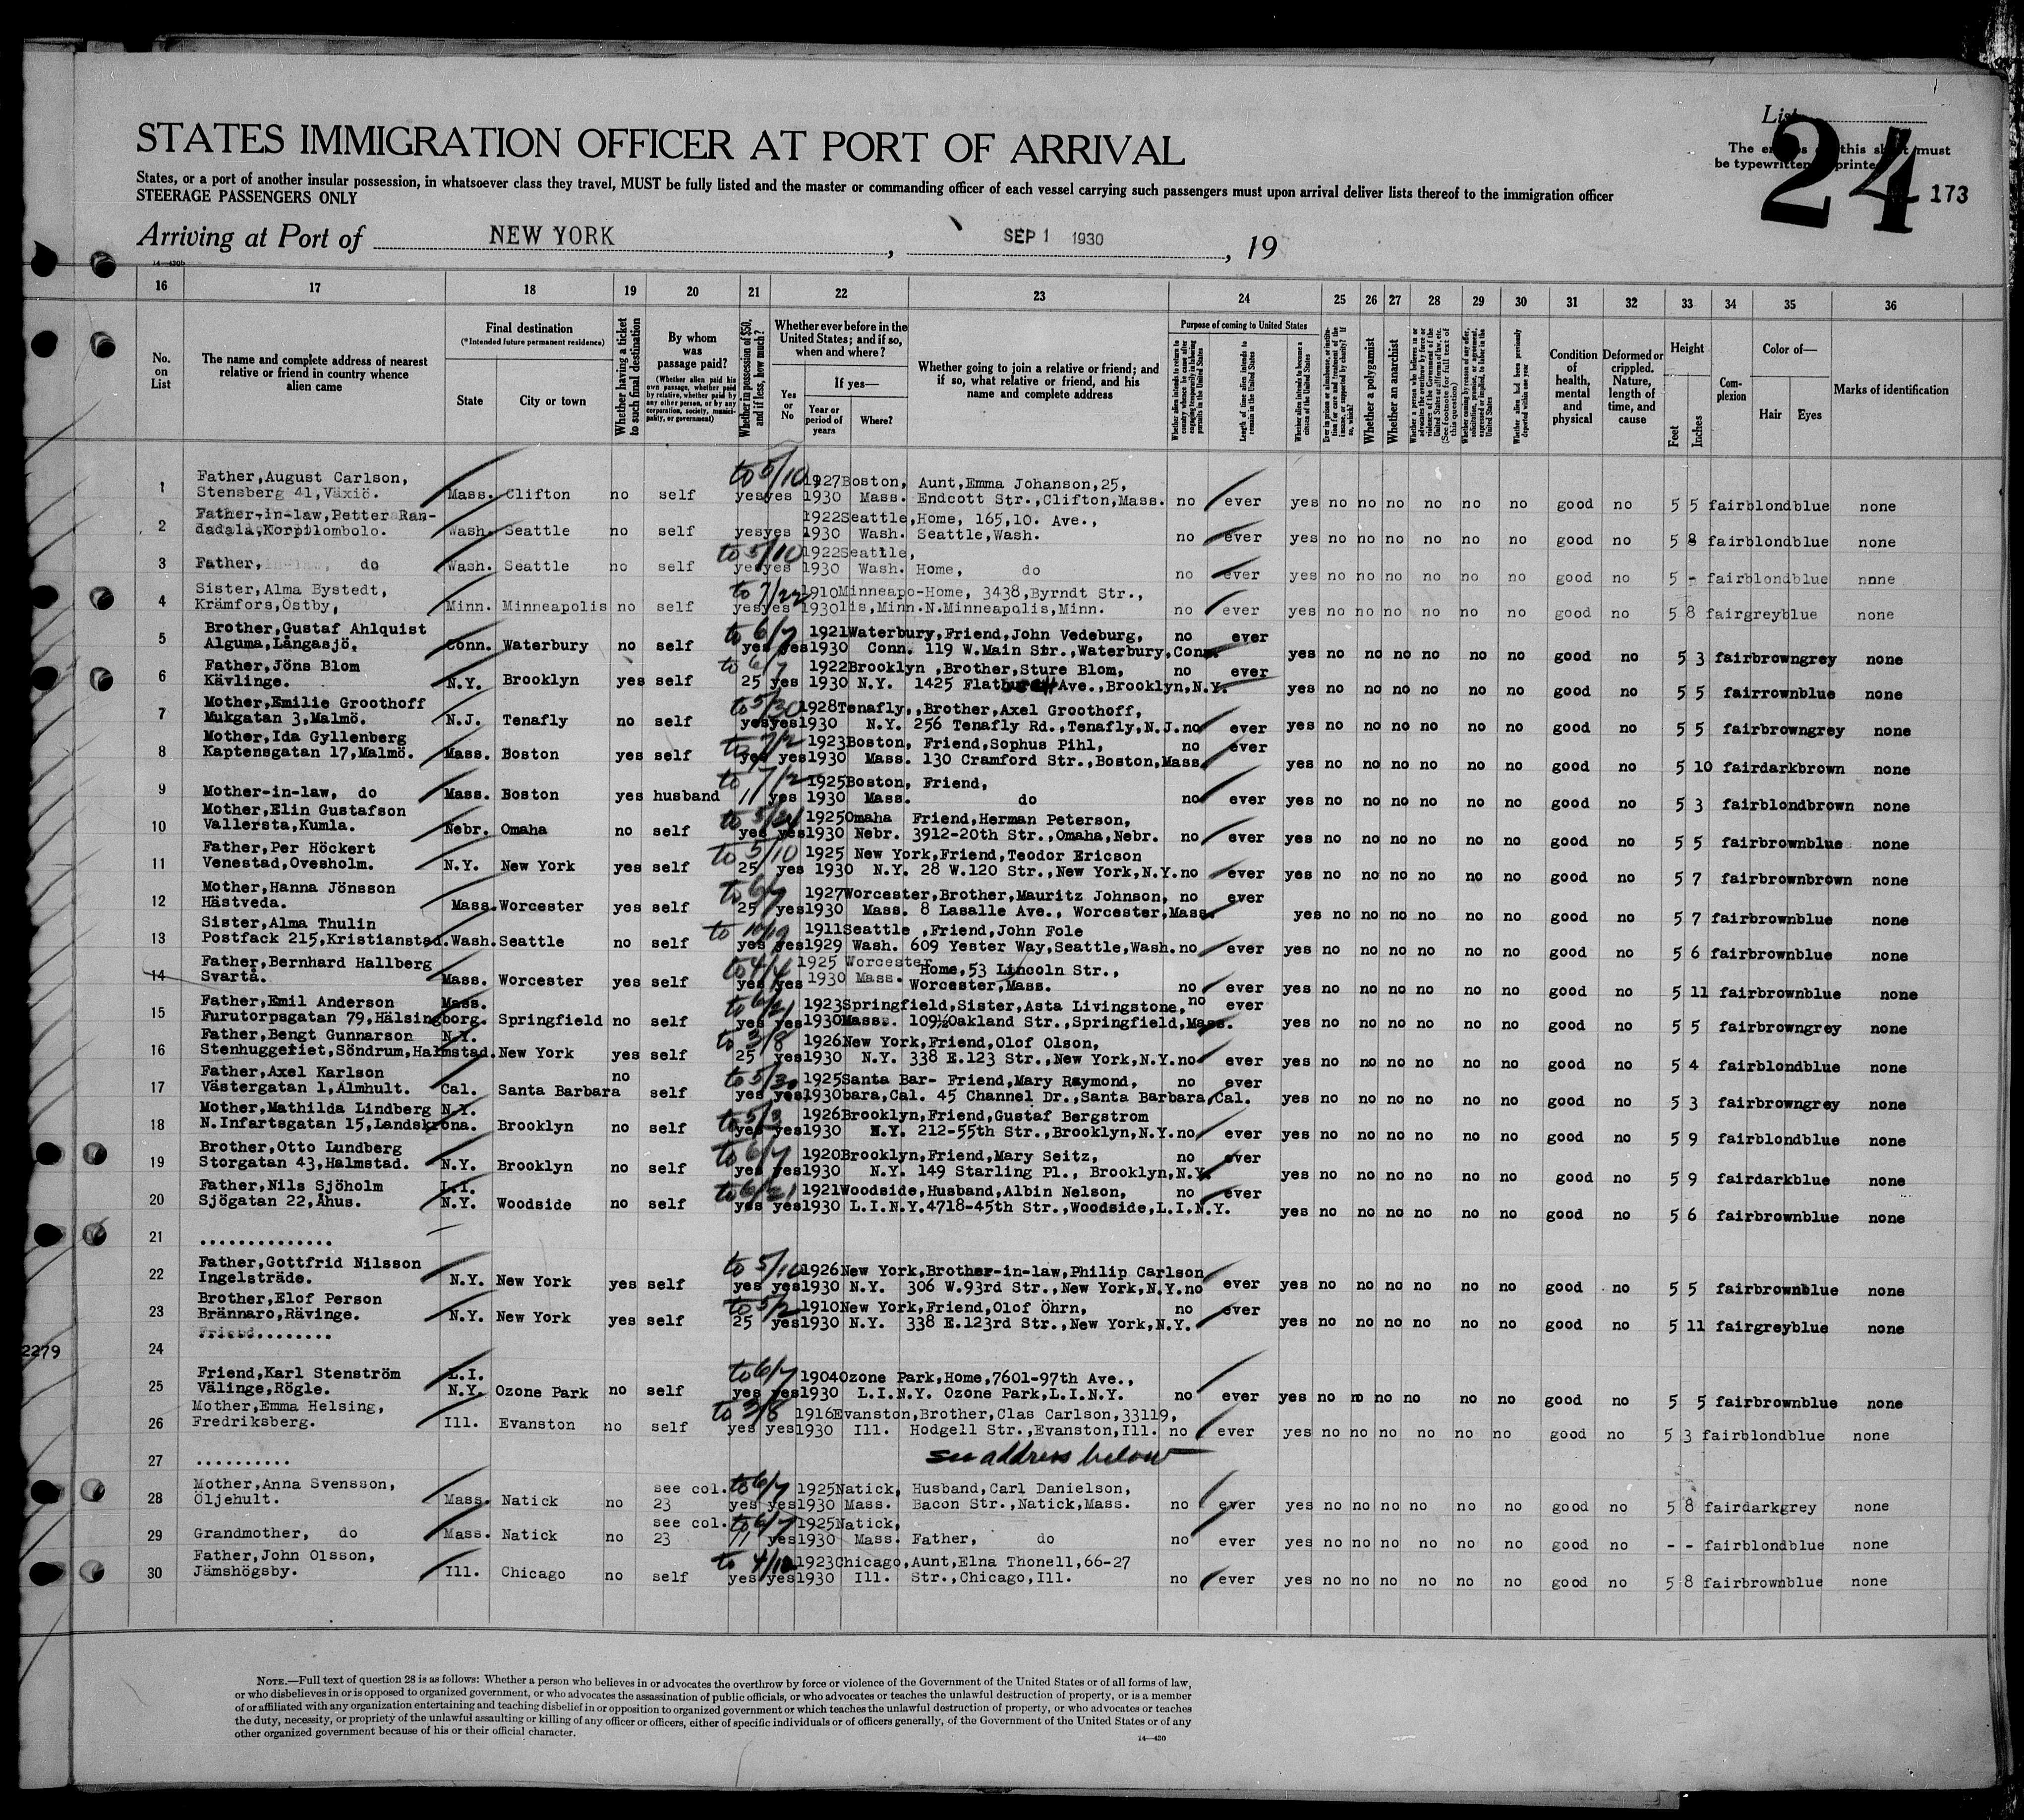 List
24
The entries on this sheet must
be typewritten or printed
173
STATES IMMIGRATION OFFICER AT PORT OF ARRIVAL
States, or a port of another insular possession, in whatsoever class they travel, MUST be fully listed and the master or commanding officer of each vessel carrying such passengers must upon arrival deliver lists thereof to the immigration officer
STEERAGE PASSENGERS ONLY
Arriving at Port of NEW YORK, SEP 1 1930, 19
14—430b
16 17 18 19 20 21 22 23 24 25 26 27 28 29 30 31 32 33 34 35 36
No. on List
The name and complete address of nearest relative or friend in country whence alien came
Final destination
(*Intended future permanent residence)
State
City or town
Whether having a ticket to such final destination
By whom was passage paid?
(Whether alien paid his own passage, whether paid by relative, whether paid by any other person, or by any corporation, society, municipality, or government)
Whether in possession of $50, and if less, how much?
Whether ever before in the United States; and if so, when and where?
Yes or No
If yes—
Year or period of years
Where?
Whether going to join a relative or friend; and if so, what relative or friend, and his name and complete address
Purpose of coming to United States
Length of time alien intends to remain in the United States
Whether alien intends to become a citizen of the United States
Whether a polygamist
Whether an anarchist
Condition of health, mental and physical
Deformed or crippled. Nature, length of time, and cause
Height
Feet
Inches
Complexion
Color of—
Hair
Eyes
Marks of identification
1 Father,August Carlson, to 5/10 1927 Boston, Aunt,Emma Johanson,25,
Stensberg 41,Växiö. Mass. Clifton no self yes yes 1930 Mass. Endcott Str.,Clifton,Mass. no ever yes no no no no no no good no 5 5 fair blond blue none
2 Father-in-law,Petter Ran- 1922 Seattle, Home, 165,10. Ave.,
dadala,Korpilombolo. Wash. Seattle no self yes yes 1930 Wash. Seattle,Wash. no ever yes no no no no no no good no 5 8 fair blond blue none
3 to 5/10 1922 Seattle,
Father, do Wash. Seattle no self yes yes 1930 Wash. Home, do no ever yes no no no no no no good no 5 - fair blond blue none
4 Sister,Alma Bystedt, to 7/22 1910 Minneapo- Home, 3438,Byrndt Str.,
Krämfors,Östby, Minn. Minneapolis no self yes yes 1930 lis,Minn. N.Minneapolis,Minn. no ever yes no no no no no no good no 5 8 fair grey blue none
5 Brother,Gustaf Ahlquist to 6/7 1921 Waterbury, Friend,John Vedeburg, no ever
Alguma,Långasjö. Conn. Waterbury no self yes yes 1930 Conn. 119 W.Main Str.,Waterbury,Conn. yes no no no no no no good no 5 3 fair brown grey none
6 Father,Jöns Blom to 6/7 1922 Brooklyn ,Brother,Sture Blom, no ever
Kävlinge. N.Y. Brooklyn yes self 25 yes 1930 N.Y. 1425 Flatbush Ave.,Brooklyn,N.Y. yes no no no no no no good no 5 5 fair rown blue none
7 Mother,Emilie Groothoff to 5/30 1928 Tenafly,,Brother,Axel Groothoff,
Mukgatan 3,Malmö. N.J. Tenafly no self yes yes 1930 N.Y. 256 Tenafly Rd.,Tenafly,N.J. no ever yes no no no no no no good no 5 5 fair brown grey none
8 Mother,Ida Gyllenberg to 7/2 1923 Boston, Friend,Sophus Pihl, no ever
Kaptensgatan 17,Malmö. Mass. Boston yes self yes yes 1930 Mass. 130 Cramford Str.,Boston,Mass. yes no no no no no no good no 5 10 fair dark brown none
9 to 7/2 1925 Boston, Friend,
Mother-in-law, do Mass. Boston yes husband 11 yes 1930 Mass. do no ever yes no no no no no no good no 5 3 fair blond brown none
10 Mother,Elin Gustafson to 1925 Omaha Friend,Herman Peterson,
Vallersta,Kumla. Nebr. Omaha no self yes yes 1930 Nebr. 3912-20th Str.,Omaha,Nebr. no ever yes no no no no no no good no 5 5 fair brown blue none
11 Father,Per Höckert to 5/10 1925 New York,Friend,Teodor Ericson
Venestad,Ovesholm. N.Y. New York yes self 25 yes 1930 N.Y. 28 W.120 Str.,New York,N.Y. no ever yes no no no no no no good no 5 7 fair brown brown none
12 Mother,Hanna Jönsson to 6/7 1927 Worcester,Brother,Mauritz Johnson, no ever
Hästveda. Mass. Worcester yes self 25 yes 1930 Mass. 8 Lasalle Ave., Worcester,Mass. yes no no no no no no good no 5 7 fair brown blue none
13 Sister,Alma Thulin to 10/19 1911 Seattle ,Friend,John Fole
Postfack 215,Kristianstad. Wash. Seattle no self yes yes 1929 Wash. 609 Yester Way,Seattle,Wash. no ever yes no no no no no no good no 5 6 fair brown blue none
14 Father,Bernhard Hallberg to 4/4 1925 Worcester Home,53 Lincoln Str.,
Svartå. Mass. Worcester yes self yes yes 1930 Mass. Worcester,Mass. no ever yes no no no no no no good no 5 11 fair brown blue none
15 Father,Emil Anderson Mass. to 6/21 1923 Springfield,Sister,Asta Livingstone, no ever
Furutorpsgatan 79,Hälsingborg. Springfield no self yes yes 1930 Mass. 109½Oakland Str.,Springfield,Mass. yes no no no no no no good no 5 5 fair brown grey none
16 Father,Bengt Gunnarson N.Y. to 3/8 1926 New York,Friend,Olof Olson,
Stenhuggeriet,Söndrum,Halmstad. New York yes self 25 yes 1930 N.Y. 338 E.123 Str.,New York,N.Y. no ever yes no no no no no no good no 5 4 fair blond blue none
17 Father,Axel Karlson no to 5/30 1925 Santa Bar- Friend,Mary Raymond, no ever
Västergatan 1,Älmhult. Cal. Santa Barbara self yes yes 1930 bara,Cal. 45 Channel Dr.,Santa Barbara,Cal. yes no no no no no no good no 5 3 fair brown grey none
18 Mother,Mathilda Lindberg N.Y. to 5/3 1926 Brooklyn,Friend,Gustaf Bergstrom
N.Infartsgatan 15,Landskrona. Brooklyn no self yes yes 1930 N.Y. 212-55th Str.,Brooklyn,N.Y. no ever yes no no no no no no good no 5 9 fair blond blue none
19 Brother,Otto Lundberg to 6/7 1920 Brooklyn,Friend,Mary Seitz, no ever
Storgatan 43,Halmstad. N.Y. Brooklyn no self yes yes 1930 N.Y. 149 Starling Pl., Brooklyn,N.Y. yes no no no no no no good no 5 9 fair dark blue none
20 Father,Nils Sjöholm L.I. to 6/21 1921 Woodside,Husband,Albin Nelson, no ever
Sjögatan 22,Åhus. N.Y. Woodside no self yes yes 1930 L.I.N.Y. 4718-45th Str.,Woodside,L.I.N.Y. yes no no no no no no good no 5 6 fair brown blue none
21 ..............
22 Father,Gottfrid Nilsson to 5/10 1926 New York,Brother-in-law,Philip Carlson
Ingelsträde. N.Y. New York yes self yes yes 1930 N.Y. 306 W.93rd Str.,New York,N.Y. no ever yes no no no no no no good no 5 5 fair brown blue none
23 Brother,Elof Person to 5/2 1910 New York,Friend,Olof Öhrn, no ever
Brännaro,Rävinge. N.Y. New York yes self 25 yes 1930 N.Y. 338 E.123rd Str.,New York,N.Y. yes no no no no no no good no 5 11 fair grey blue none
2279 24 Friend..........
25 Friend,Karl Stenström L.I. to 6/7 1904 Ozone Park,Home,7601-97th Ave.,
Välinge,Rögle. N.Y. Ozone Park no self yes yes 1930 L.I.N.Y. Ozone Park,L.I.N.Y. no ever yes no no no no no no good no 5 5 fair brown blue none
26 Mother,Emma Helsing, to 3/8 1916 Evanston,Brother,Clas Carlson,33119,
Fredriksberg. Ill. Evanston no self yes yes 1930 Ill. Hodgell Str.,Evanston,Ill. no ever yes no no no no no no good no 5 3 fair blond blue none
27 .......... see address below
28 Mother,Anna Svensson, see col. to 6/7 1925 Natick, Husband,Carl Danielson,
Öljehult. Mass. Natick no 23 yes yes 1930 Mass. Bacon Str.,Natick,Mass. no ever yes no no no no no no good no 5 8 fair dark grey none
29 see col. to 6/7 1925 Natick,
Grandmother, do Mass. Natick no 23 11 yes 1930 Mass. Father, do no ever yes no no no no no no good no - - fair blond blue none
30 Father,John Olsson, to 4/12 1923 Chicago,Aunt,Elna Thonell,66-27
Jämshögsby. Ill. Chicago no self yes yes 1930 Ill. Str.,Chicago,Ill. no ever yes no no no no no no good no 5 8 fair brown blue none
NOTE.—Full text of question 28 is as follows: Whether a person who believes in or advocates the overthrow by force or violence of the Government of the United States or of all forms of law,
or who disbelieves in or is opposed to organized government, or who advocates the assassination of public officials, or who advocates or teaches the unlawful destruction of property, or is a member
of or affiliated with any organization entertaining and teaching disbelief in or opposition to organized government or which teaches the unlawful destruction of property, or who advocates or teaches
the duty, necessity, or propriety of the unlawful assaulting or killing of any officer or officers, either of specific individuals or of officers generally, of the Government of the United States or of any
other organized government because of his or their official character.
14—430